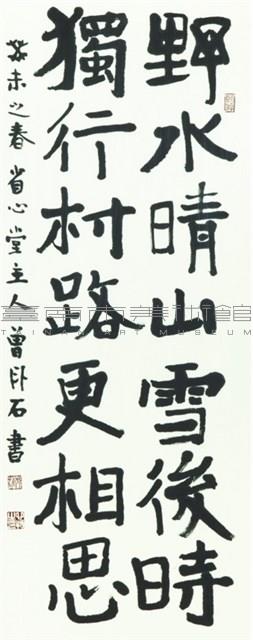 野水晴山雪後時
獨行村路更相思
癸未之春 省心堂主人曾卧石書
臺南市美術館
TAINAN ART MUSEUM